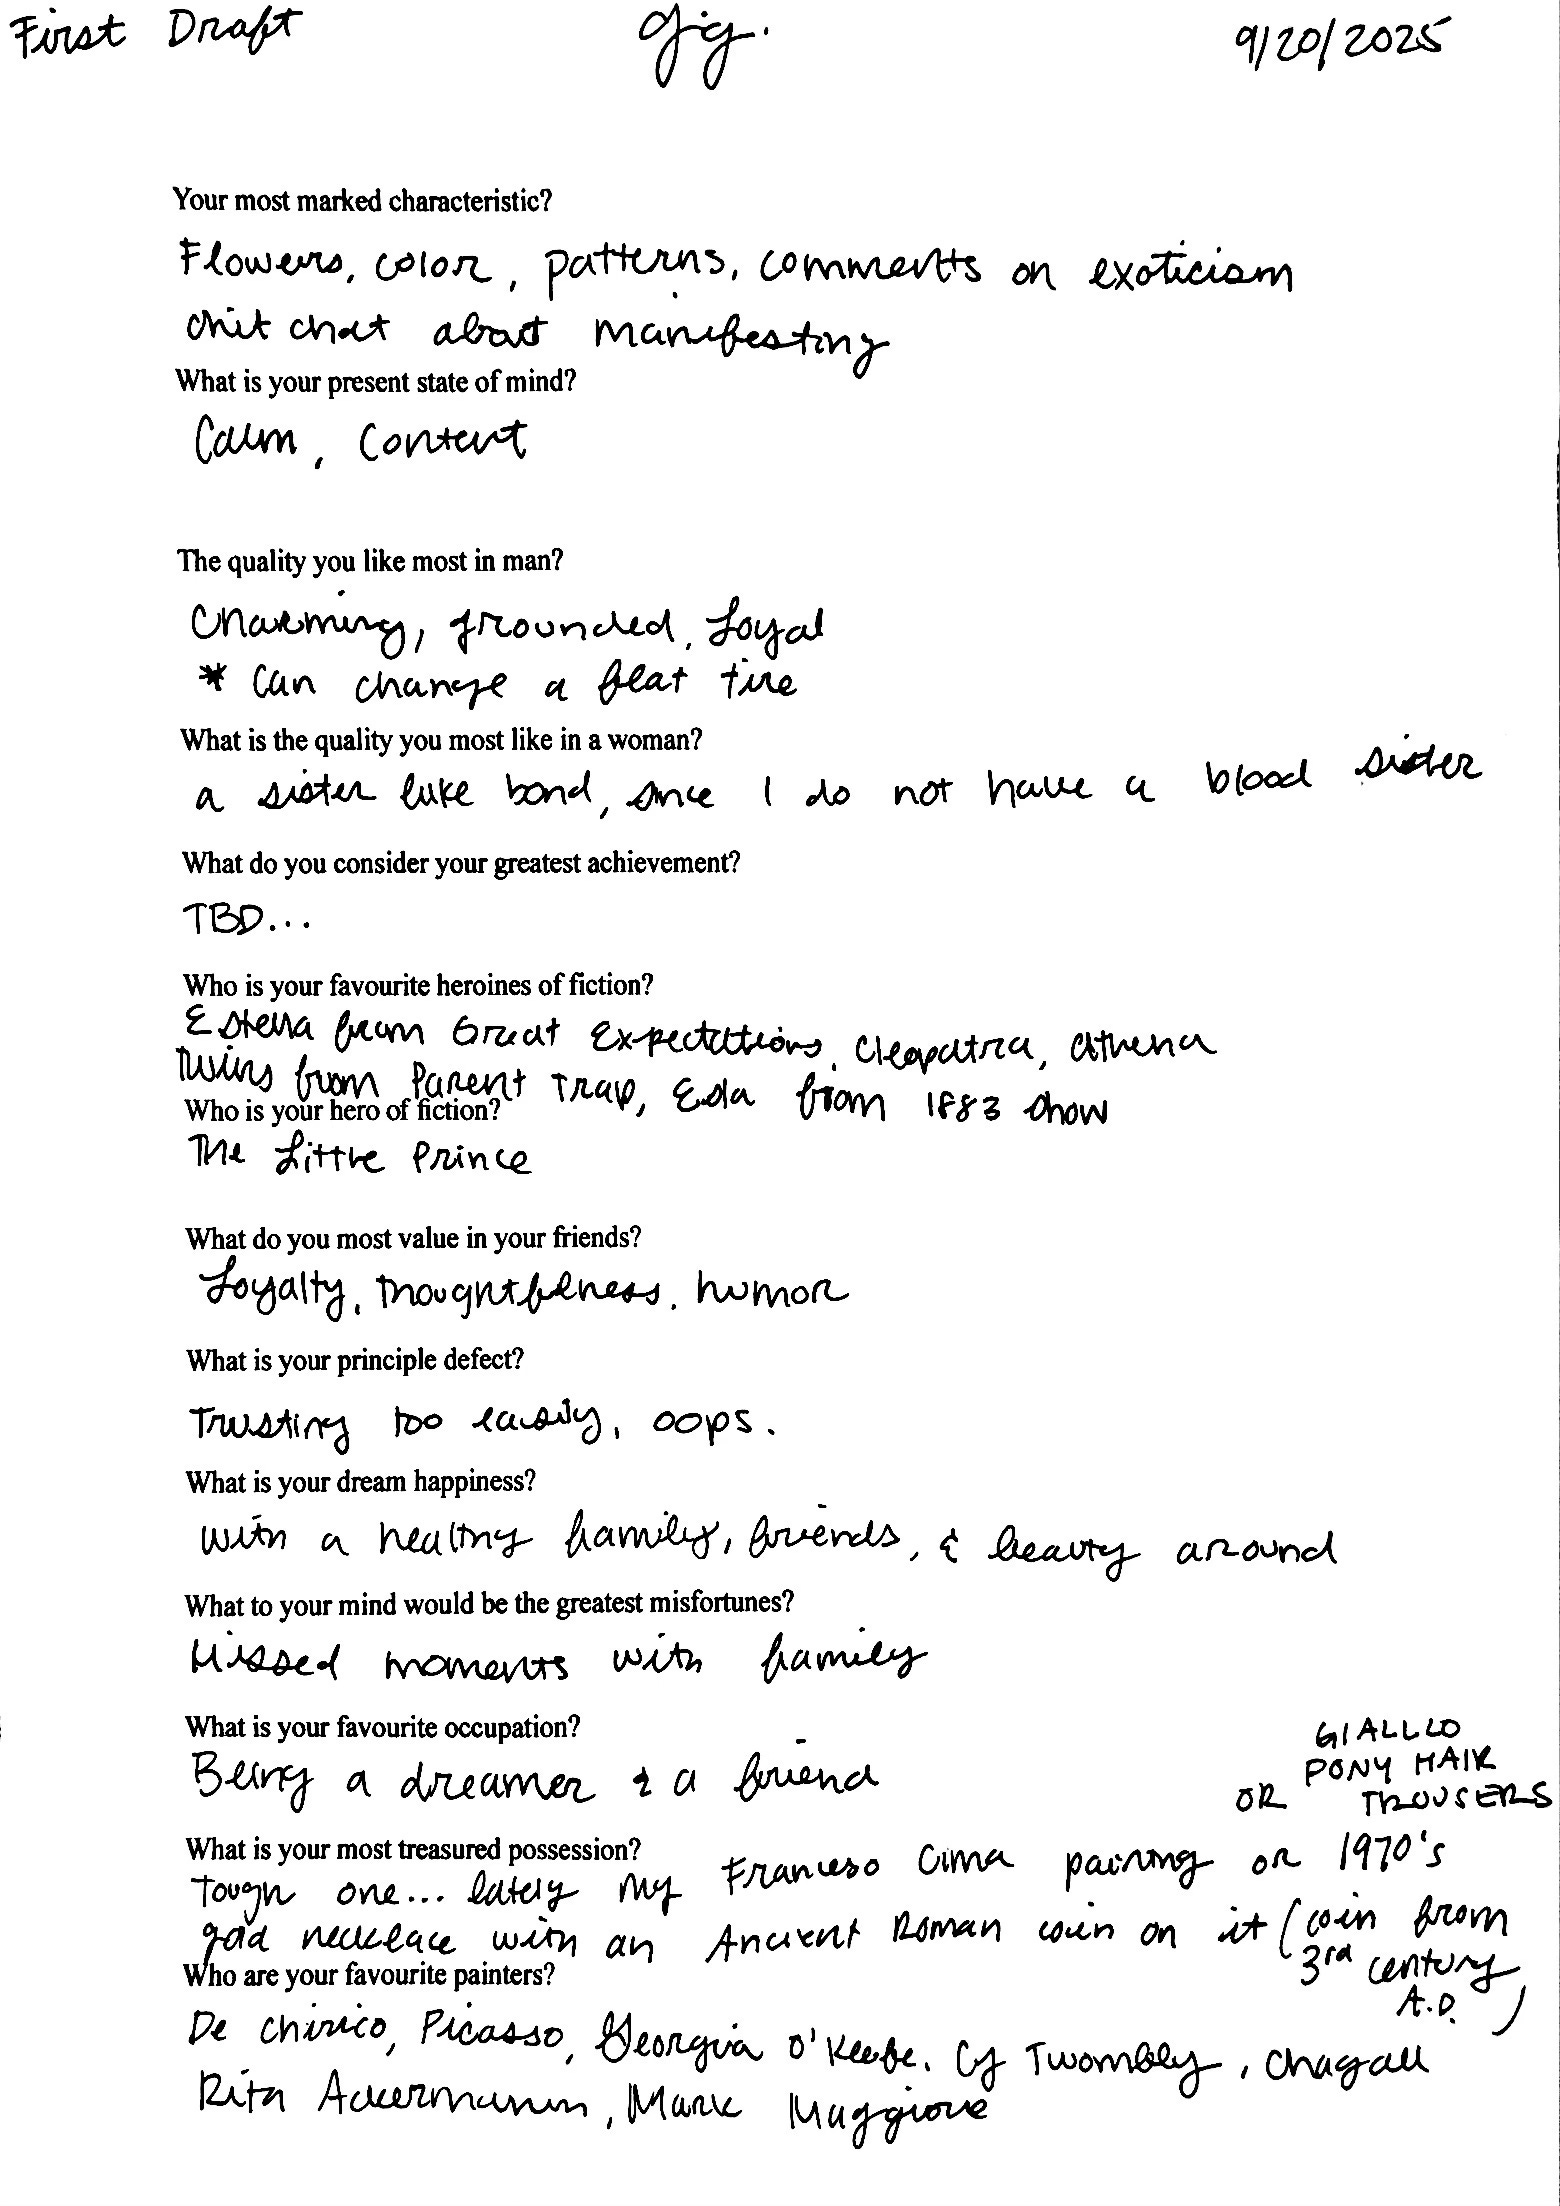 First Draft
gig.
9/20/2025
Your most marked characteristic?
Flowers, color, patterns, comments on exoticism
chit chat about manifesting
What is your present state of mind?
Calm, Content
The quality you like most in man?
Charming, grounded, Loyal
* Can change a flat tire
What is the quality you most like in a woman?
a sister like bond, since I do not have a blood sister
What do you consider your greatest achievement?
TBD...
Who is your favourite heroines of fiction?
Estella from Great Expectations, Cleopatra, Athena
Twins from Parent Trap, Elsa from 1883 show
Who is your hero of fiction?
The Little Prince
What do you most value in your friends?
Loyalty, thoughtfulness, humor
What is your principle defect?
Trusting too easily, oops.
What is your dream happiness?
with a healthy family, friends, & beauty around
What to your mind would be the greatest misfortunes?
Missed moments with family
What is your favourite occupation?
Being a dreamer & a friend
GIALLLO
PONY HAIR
OR TROUSERS
What is your most treasured possession?
Tough one... lately my Francesco Cima painting or 1970's
gold necklace with an Ancient Roman coin on it (coin from
3rd century
A.D. )
Who are your favourite painters?
De Chirico, Picasso, Georgia O'Keefe, Cy Twombly, Chagall
Rita Ackermann, Mark Maggiore